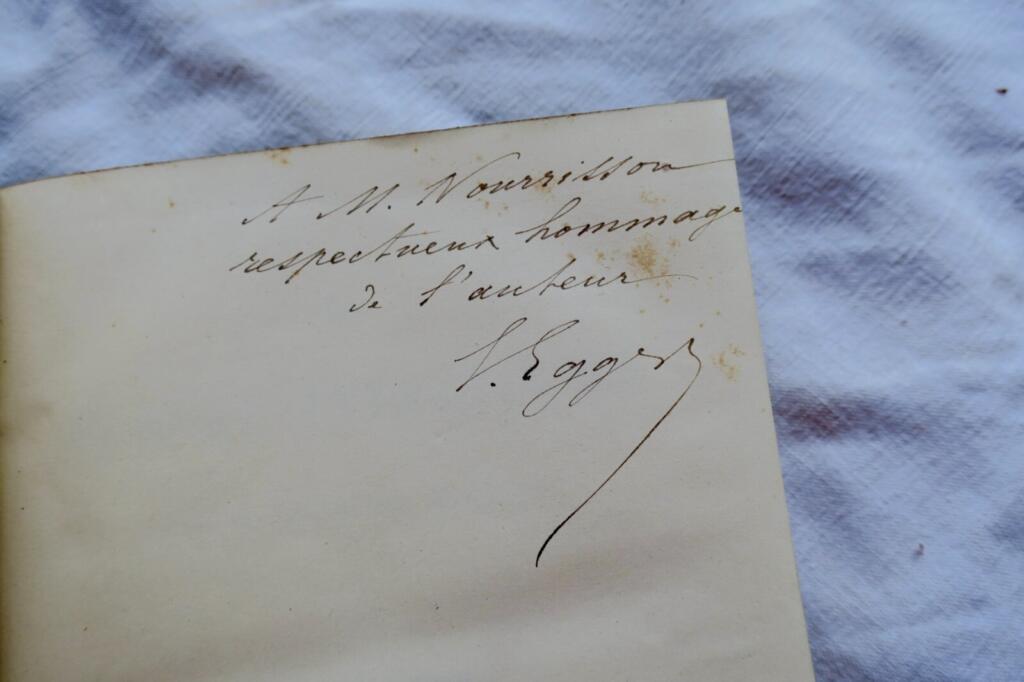 A M. Nourrisson
respectueux hommage
de l'auteur
V. Egger